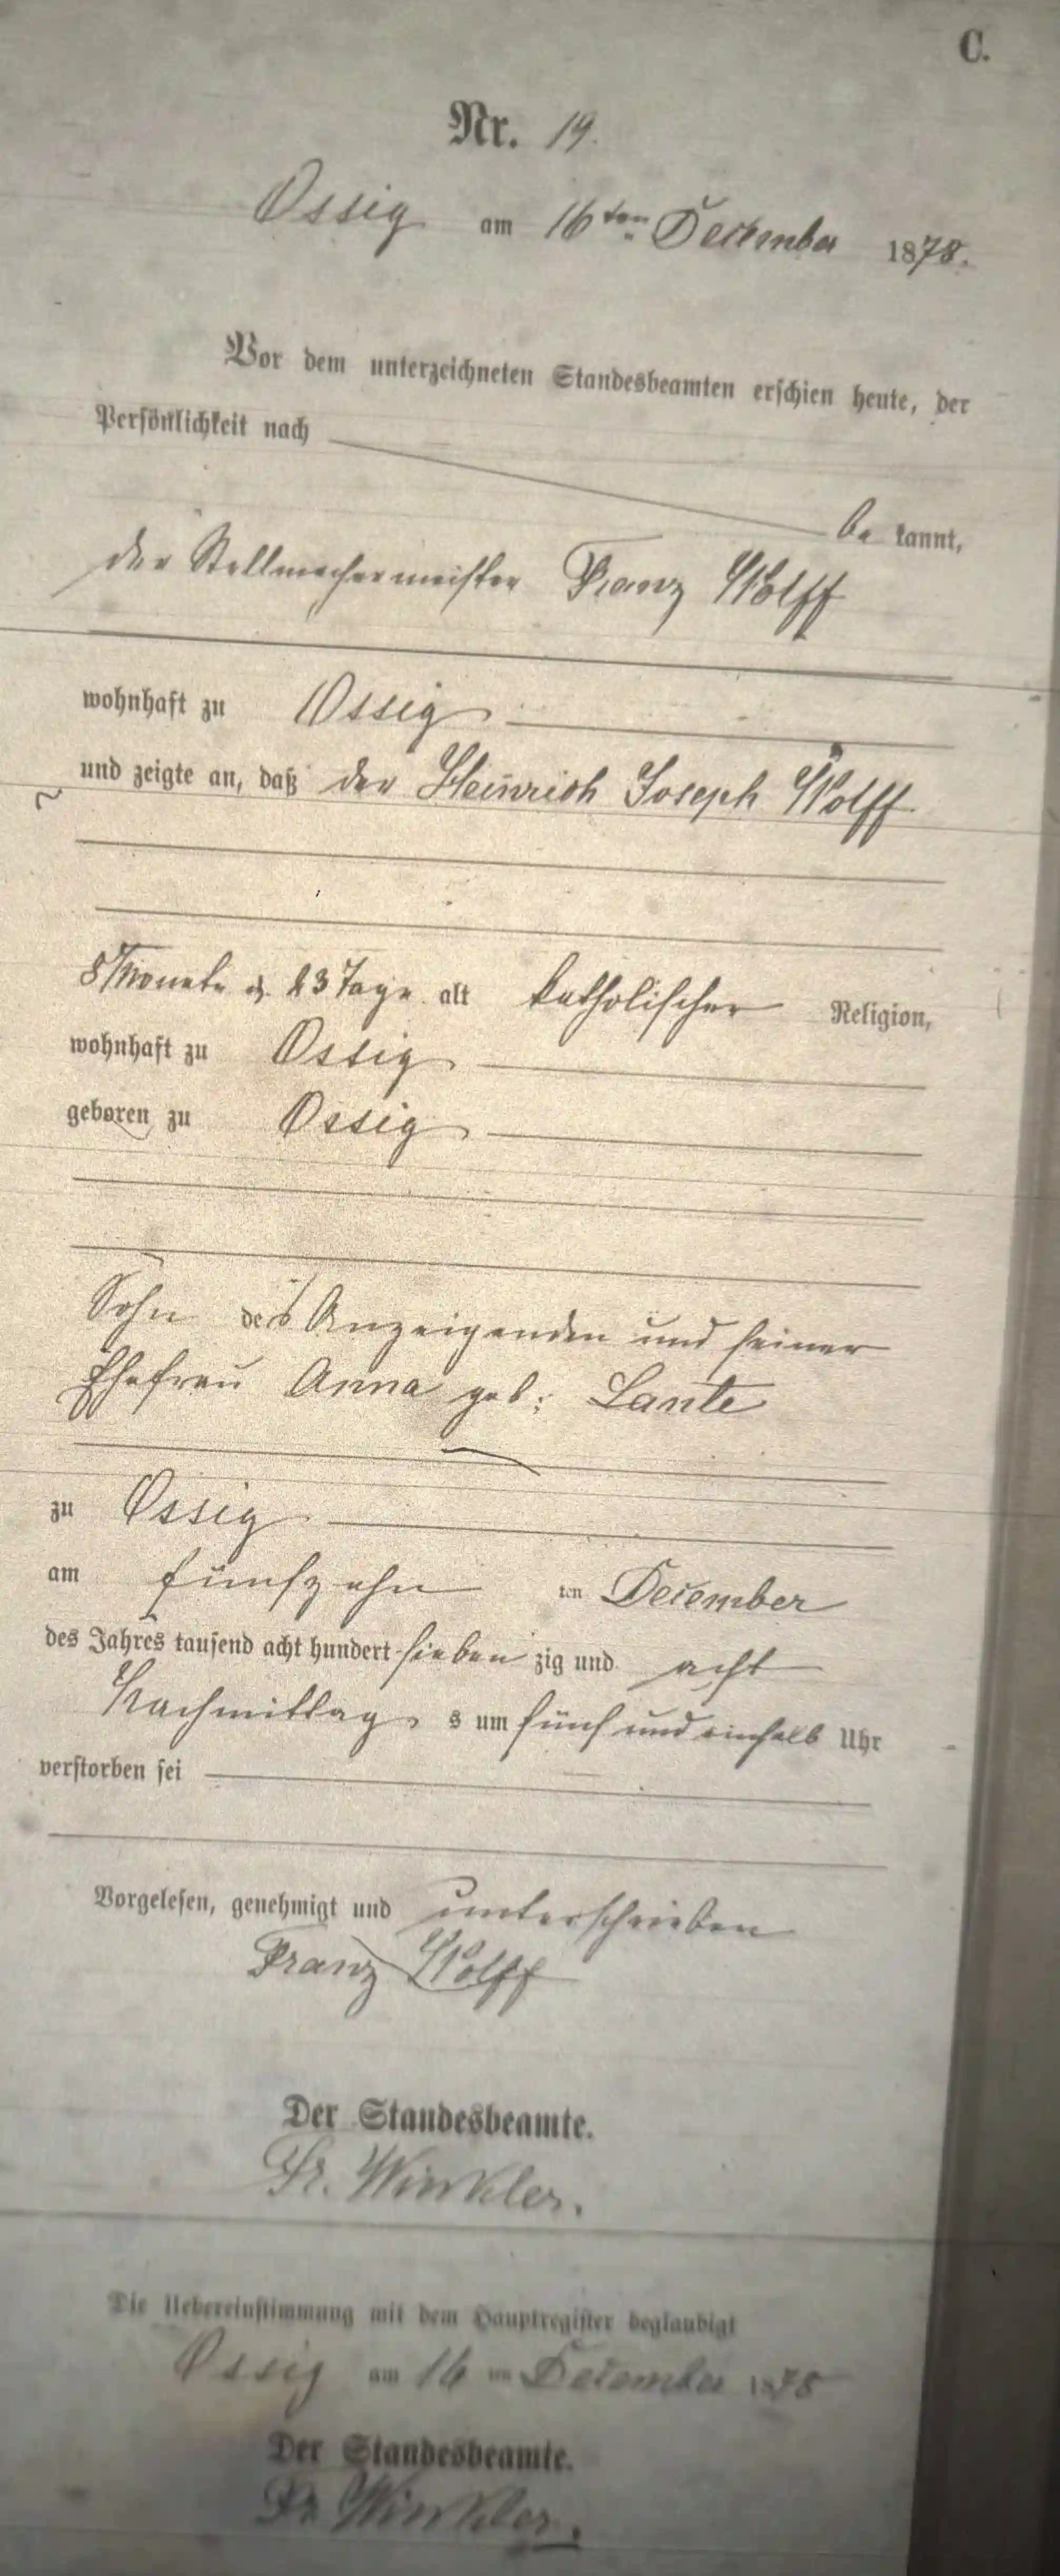 C.
Nr. 19.
Ossig am 16ten December 1878.
Vor dem unterzeichneten Standesbeamten erschien heute, der
Persönlichkeit nach
be kannt,
der Stellmachermeister Franz Wolff
wohnhaft zu Ossig
und zeigte an, daß der Heinrich Joseph Wolff
8 Monate u. 23 Tage alt katholischer Religion,
wohnhaft zu Ossig
geboren zu Ossig
Sohn des Anzeigenden und seiner
Ehefrau Anna geb: Lante
zu Ossig
am fünfzehn ten December
des Jahres tausend acht hundert sieben zig und acht
Nachmittag s um fünf und einhalb Uhr
verstorben sei
Vorgelesen, genehmigt und unterschrieben
Franz Wolff
Der Standesbeamte.
Fr. Winkler.
Die Uebereinstimmung mit dem Hauptregister beglaubigt
Ossig am 16 ten December 1878
Der Standesbeamte.
Fr. Winkler.